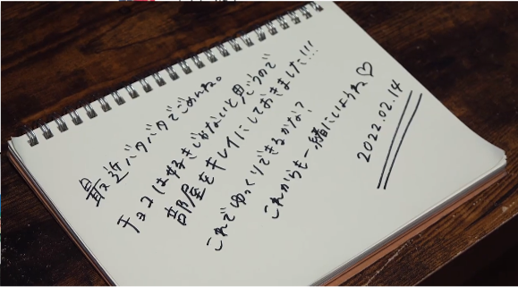 最近バタバタでごめんね。
チョコは好きじゃないと思うので
部屋をキレイにしておきました!!!
これでゆっくりできるかな?
これからも一緒にいようね♡
2022.02.14